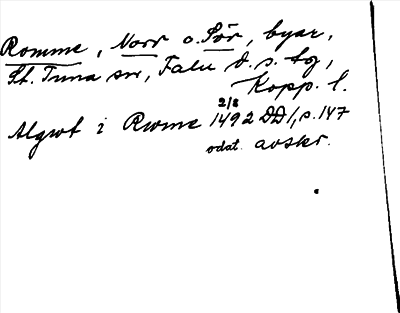 Romme, Norr o. Sör, byar,
St. Tuna sn, Falu d. s. tg,
Kopp. l.
2/8
Algwt i Rwme 1492 DD1, s. 147
odat. avskr.